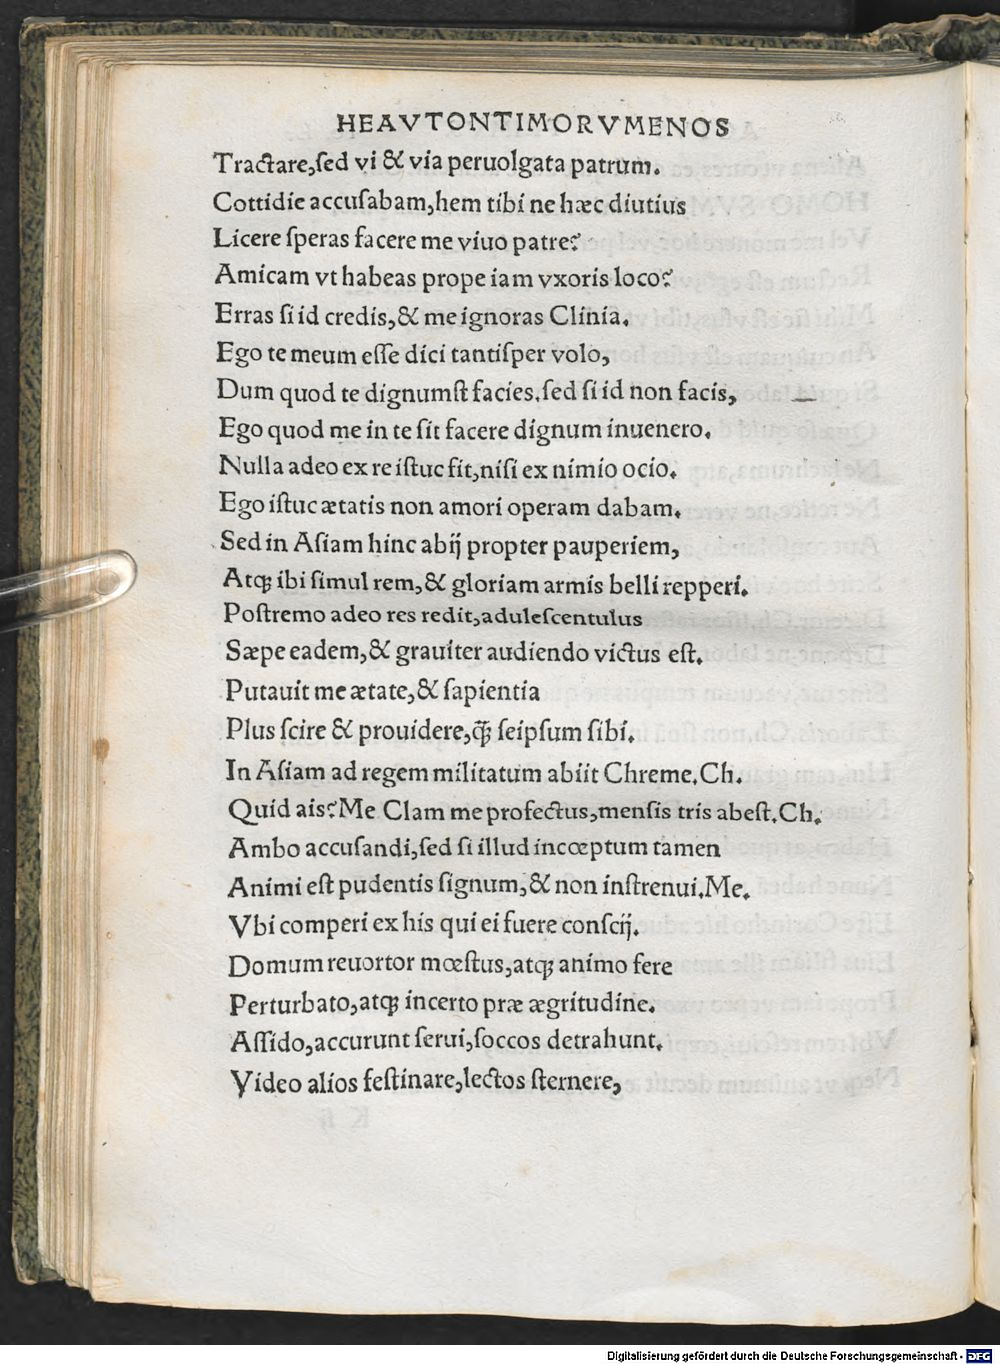 HEAVTONTIMORVMENOS
Tractare,ſed vi & via peruolgata patrum.
Cottidie accuſabam,hem tibi ne hæc diutius
Licere ſperas facere me viuo patre?
Amicam vt habeas prope iam vxoris loco?
Erras ſi id credis,& me ignoras Clinia.
Ego te meum eſſe dici tantiſper volo,
Dum quod te dignumſt facies.ſed ſi id non facis,
Ego quod me in te ſit facere dignum inuenero.
Nulla adeo ex re iſtuc fit,niſi ex nimio ocio.
Ego iſtuc ætatis non amori operam dabam.
Sed in Aſiam hinc abij propter pauperiem,
Atqꝫ ibi ſimul rem,& gloriam armis belli repperi.
Poſtremo adeo res redit,aduleſcentulus
Sæpe eadem,& grauiter audiendo victus eſt.
Putauit me ætate,& ſapientia
Plus ſcire & prouidere,q̃ꝫ ſeipſum ſibi.
In Aſiam ad regem militatum abiit Chreme.Ch.
Quid ais?Me Clam me profectus,menſis tris abeſt.Ch.
Ambo accuſandi,ſed ſi illud incœptum tamen
Animi eſt pudentis ſignum,& non inſtrenui.Me.
Vbi comperi ex his qui ei fuere conſcij.
Domum reuortor mœſtus,atqꝫ animo fere
Perturbato,atqꝫ incerto præ ægritudine.
Aſſido,accurunt ſerui,ſoccos detrahunt.
Video alios feſtinare,lectos ſternere,
Digitalisierung gefördert durch die Deutsche Forschungsgemeinschaft - DFG